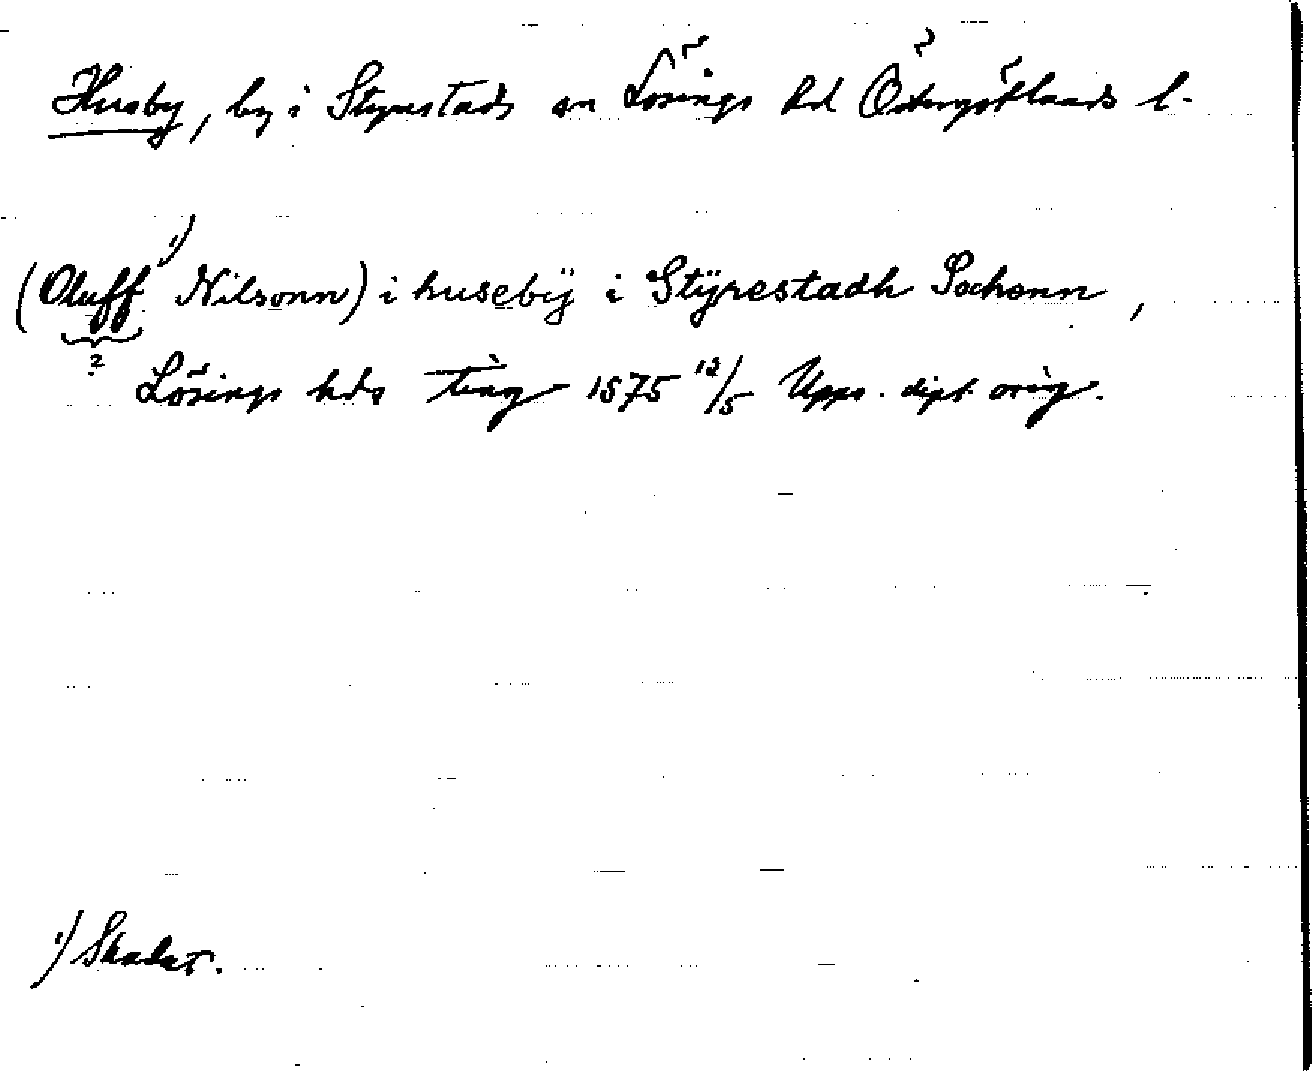 Husby, by i Styrestads sn Lösings hd Östergötlands l.
(Oluff ¹⁾ Nilsonn) i husebÿ i Stÿrestadh Sochenn,
?
Lösings hds ting 1575 12/5 Upps. dipl. orig.
¹⁾ Skadat.